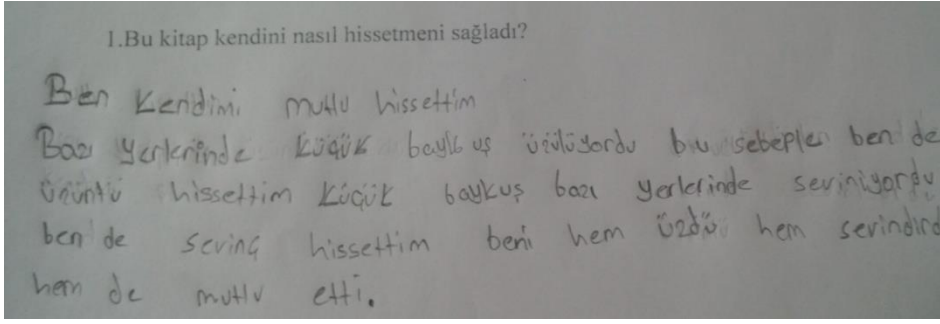 1.Bu kitap kendini nasıl hissetmeni sağladı?
Ben kendimi mutlu hissettim
Bazı yerlerinde küçük baykuş üzülüyordu bu sebeple ben de
üzüntü hissettim küçük baykuş bazı yerlerinde seviniyordu
ben de sevinç hissettim beni hem üzdü hem sevindird
hem de mutlu etti.